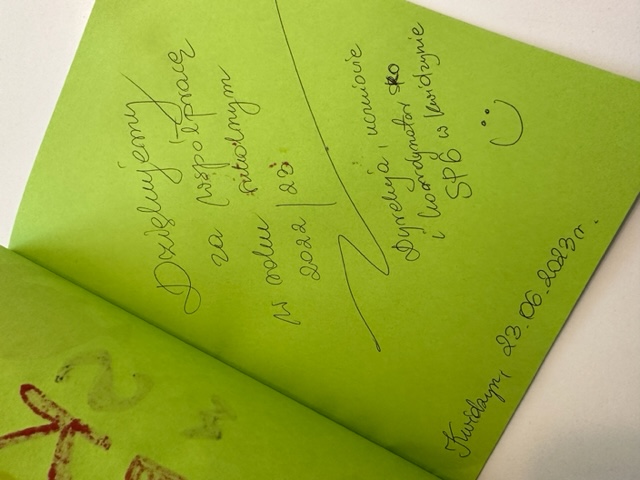 Dziękujemy
za współpracę
w roku szkolnym
2022/23
Dyrekcja, uczniowie
i koordynator SKO
SP6 w Kwidzynie
Kwidzyn, 23.06.2023r.